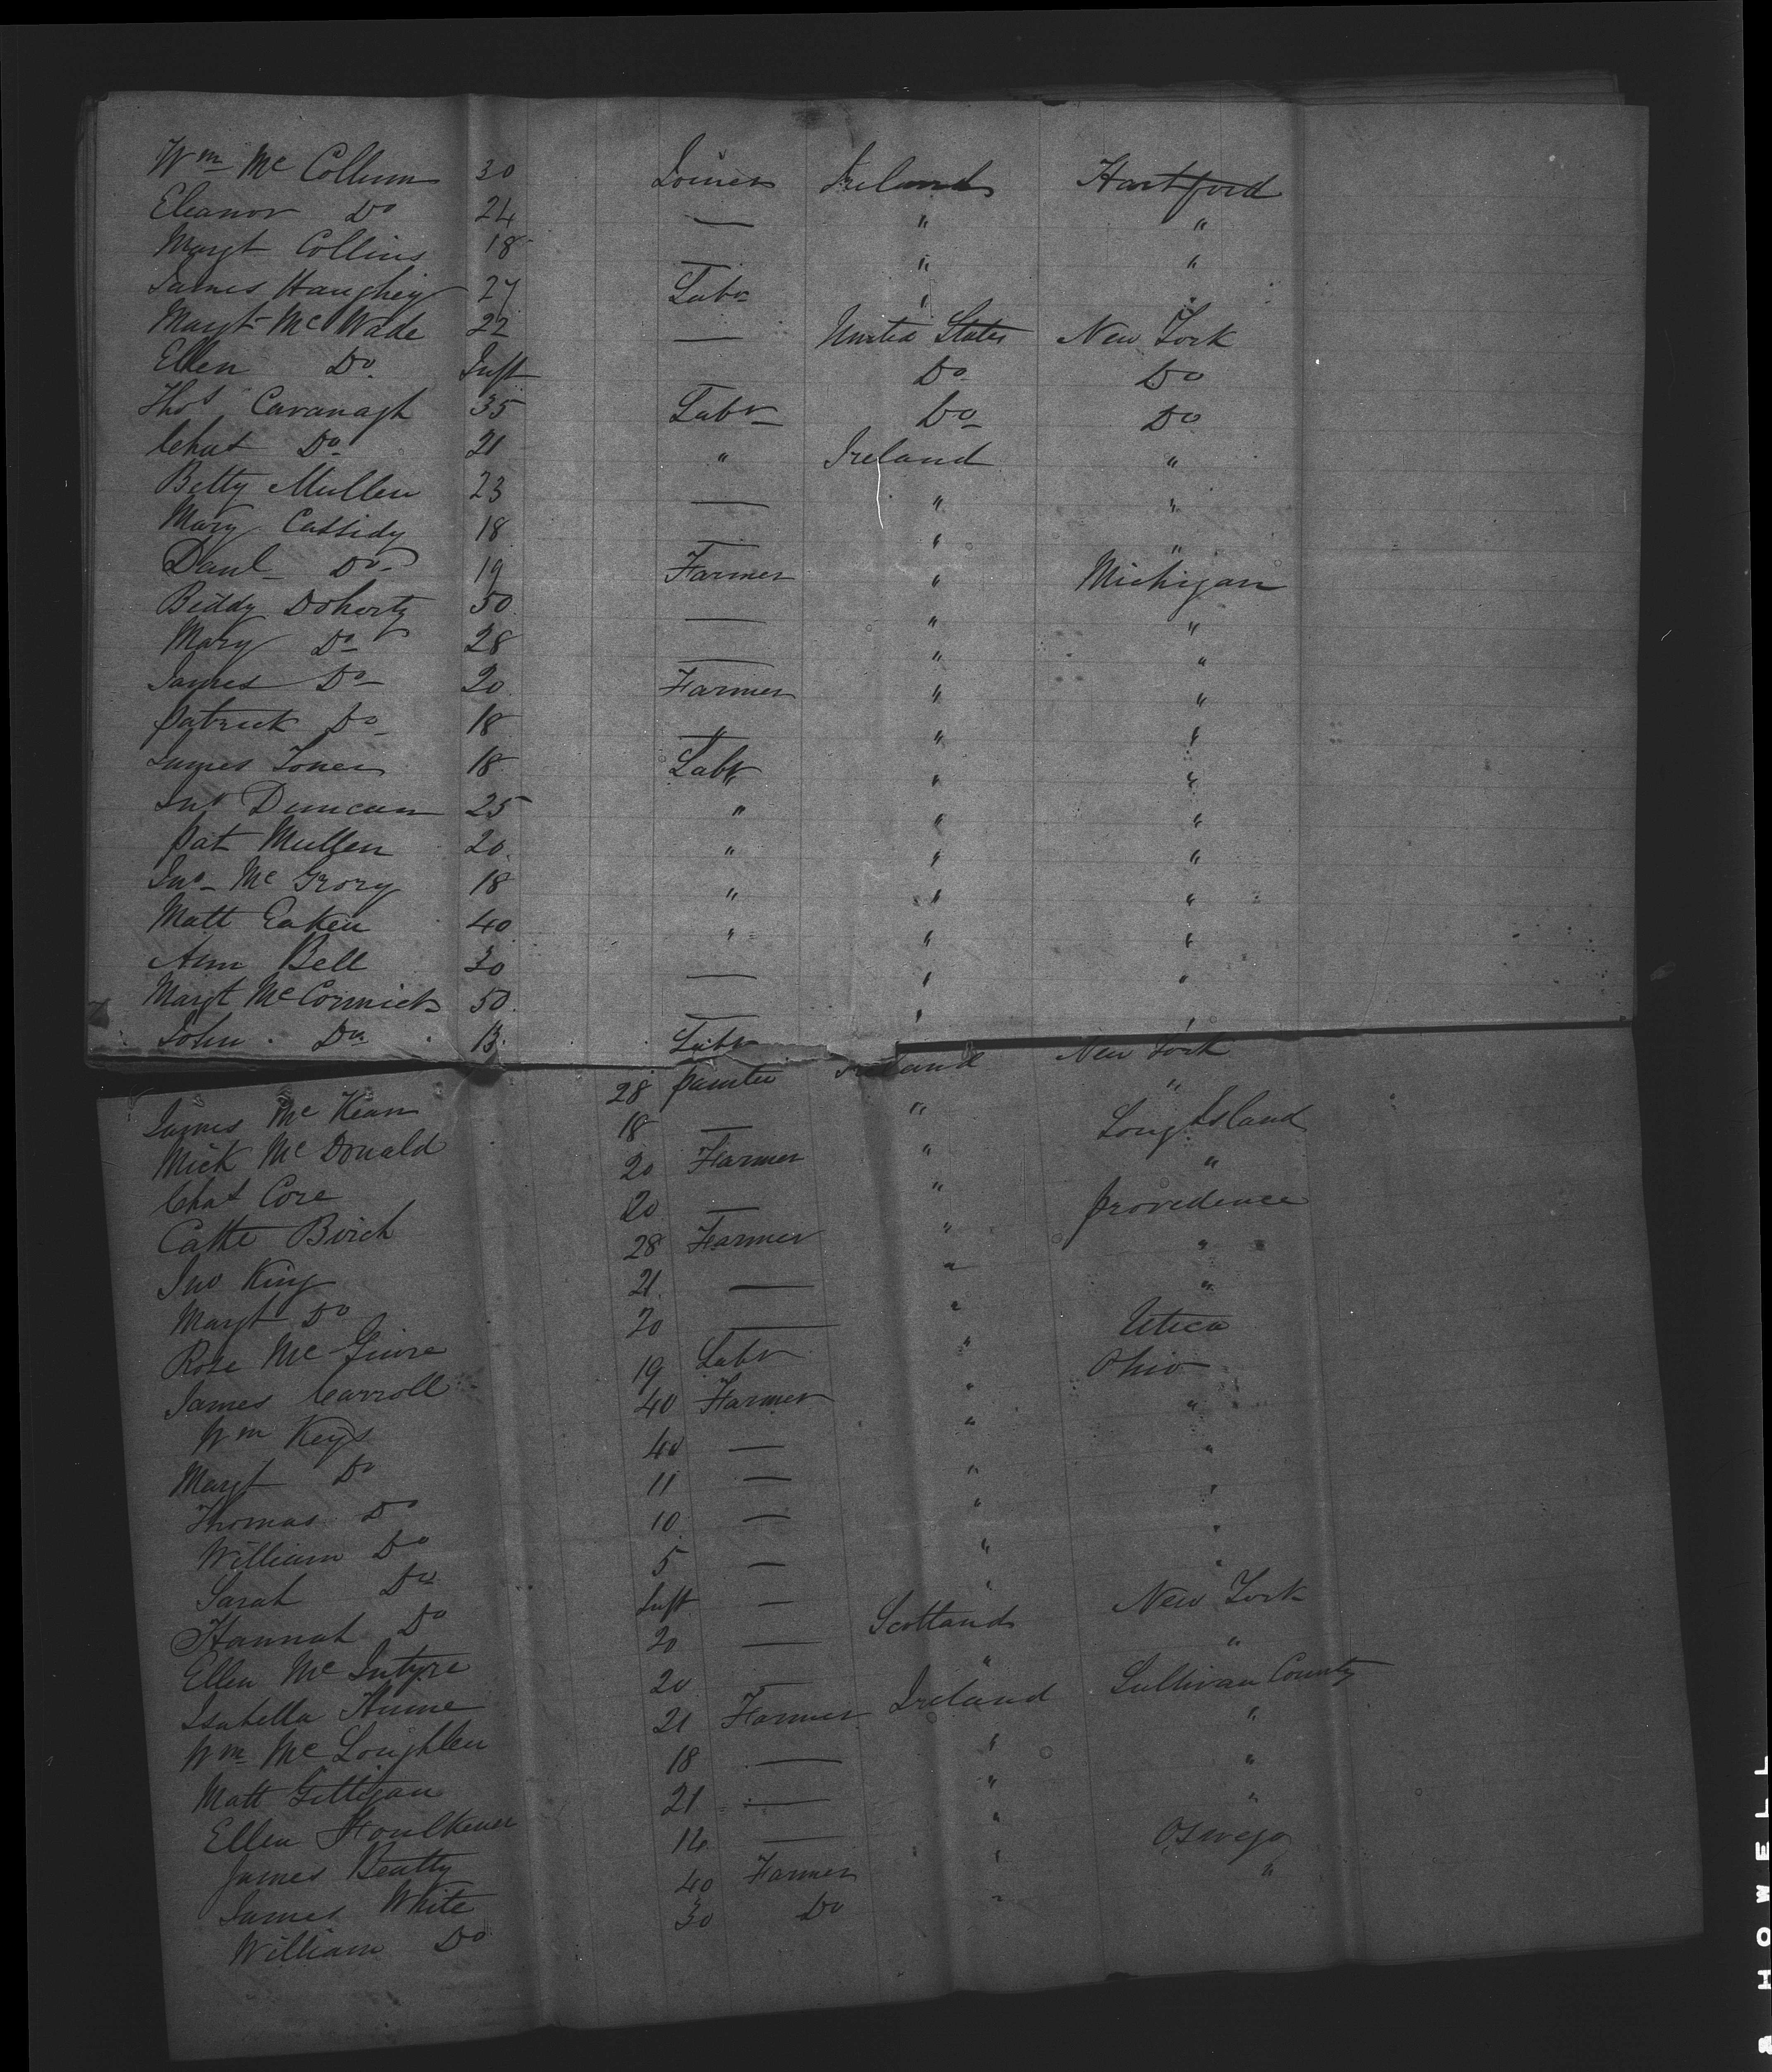 Wm Mc Collum 30 Joiner Ireland Hartford
Eleanor Do 24 — " "
Margt Collins 18 — " "
James Haughey 27 Labr " "
Margt Mc Wade 22 — United States New York
Ellen Do Inft Do Do
Thos Cavanagh 35 Labr Do Do
Chas Do 21 " Ireland "
Betty Mullen 23 — " "
Mary Cassidy 18 — " "
Danl Do 19 Farmer " Michigan
Biddy Doherty 50 — " "
Mary Do 28 — " "
James Do 20 Farmer " "
Patrick Do 18 — " "
James Toner 18 Labr " "
Jno Duncan 25 " " "
Pat Mullen 20 " " "
Jno Mc Grory 18 " " "
Matt Eaken 40 " " "
Ann Bell 30 — " "
Margt McCormick 50 — " "
John Do 13 Labr
James Mc Kean 28 painter Ireland New York
Mick Mc Donald 18 — " "
Chas Core 20 Farmer " Long Island
Cathe Birch 20 — " "
Jno King 28 Farmer " Providence
Margt Do 21 — " "
Rose Mc Guire 20 — " "
James Carroll 19 Labr " Utica
Wm Keys 40 Farmer " Ohio
Margt Do 40 — " "
Thomas Do 11 — " "
William Do 10 — " "
Sarah Do 5 — " "
Hannah Do Inft — " "
Ellen Mc Intyre 20 — Scotland New York
Isabella Hume 20 — " "
Wm Mc Loughlen 21 Farmer Ireland Sullivan County
Matt Gilligan 18 — " "
Ellen Foulkener 21 — " "
James Beatty 12 — " "
James White 40 Farmer " Oswego
William Do 30 Do " "
HOWELL